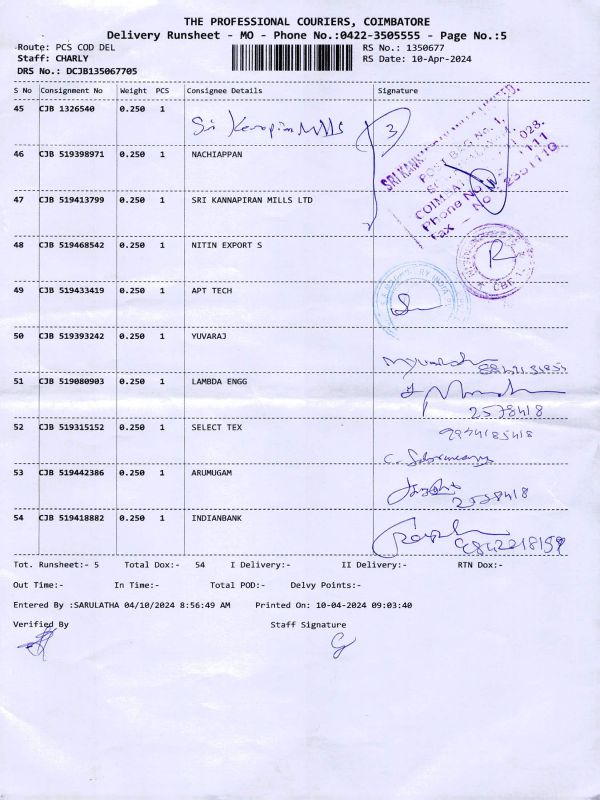 THE PROFESSIONAL COURIERS, COIMBATORE
Delivery Runsheet - MO - Phone No.:0422-3505555 - Page No.:5
Route: PCS COD DEL RS No.: 1350677
Staff: CHARLY RS Date: 10-Apr-2024
DRS No.: DCJB135067705
S No Consignment No Weight PCS Consignee Details Signature
45 CJB 1326540 0.250 1 Sri Kanapiran Mills 3
46 CJB 519398971 0.250 1 NACHIAPPAN
47 CJB 519413799 0.250 1 SRI KANNAPIRAN MILLS LTD
48 CJB 519468542 0.250 1 NITIN EXPORT S
49 CJB 519433419 0.250 1 APT TECH
50 CJB 519393242 0.250 1 YUVARAJ
51 CJB 519080903 0.250 1 LAMBDA ENGG
2578418
52 CJB 519315152 0.250 1 SELECT TEX
9994185418
53 CJB 519442386 0.250 1 ARUMUGAM
2578418
54 CJB 519418882 0.250 1 INDIANBANK
Tot. Runsheet:- 5 Total Dox:- 54 I Delivery:- II Delivery:- RTN Dox:-
Out Time:- In Time:- Total POD:- Delvy Points:-
Entered By :SARULATHA 04/10/2024 8:56:49 AM Printed On: 10-04-2024 09:03:40
Verified By Staff Signature